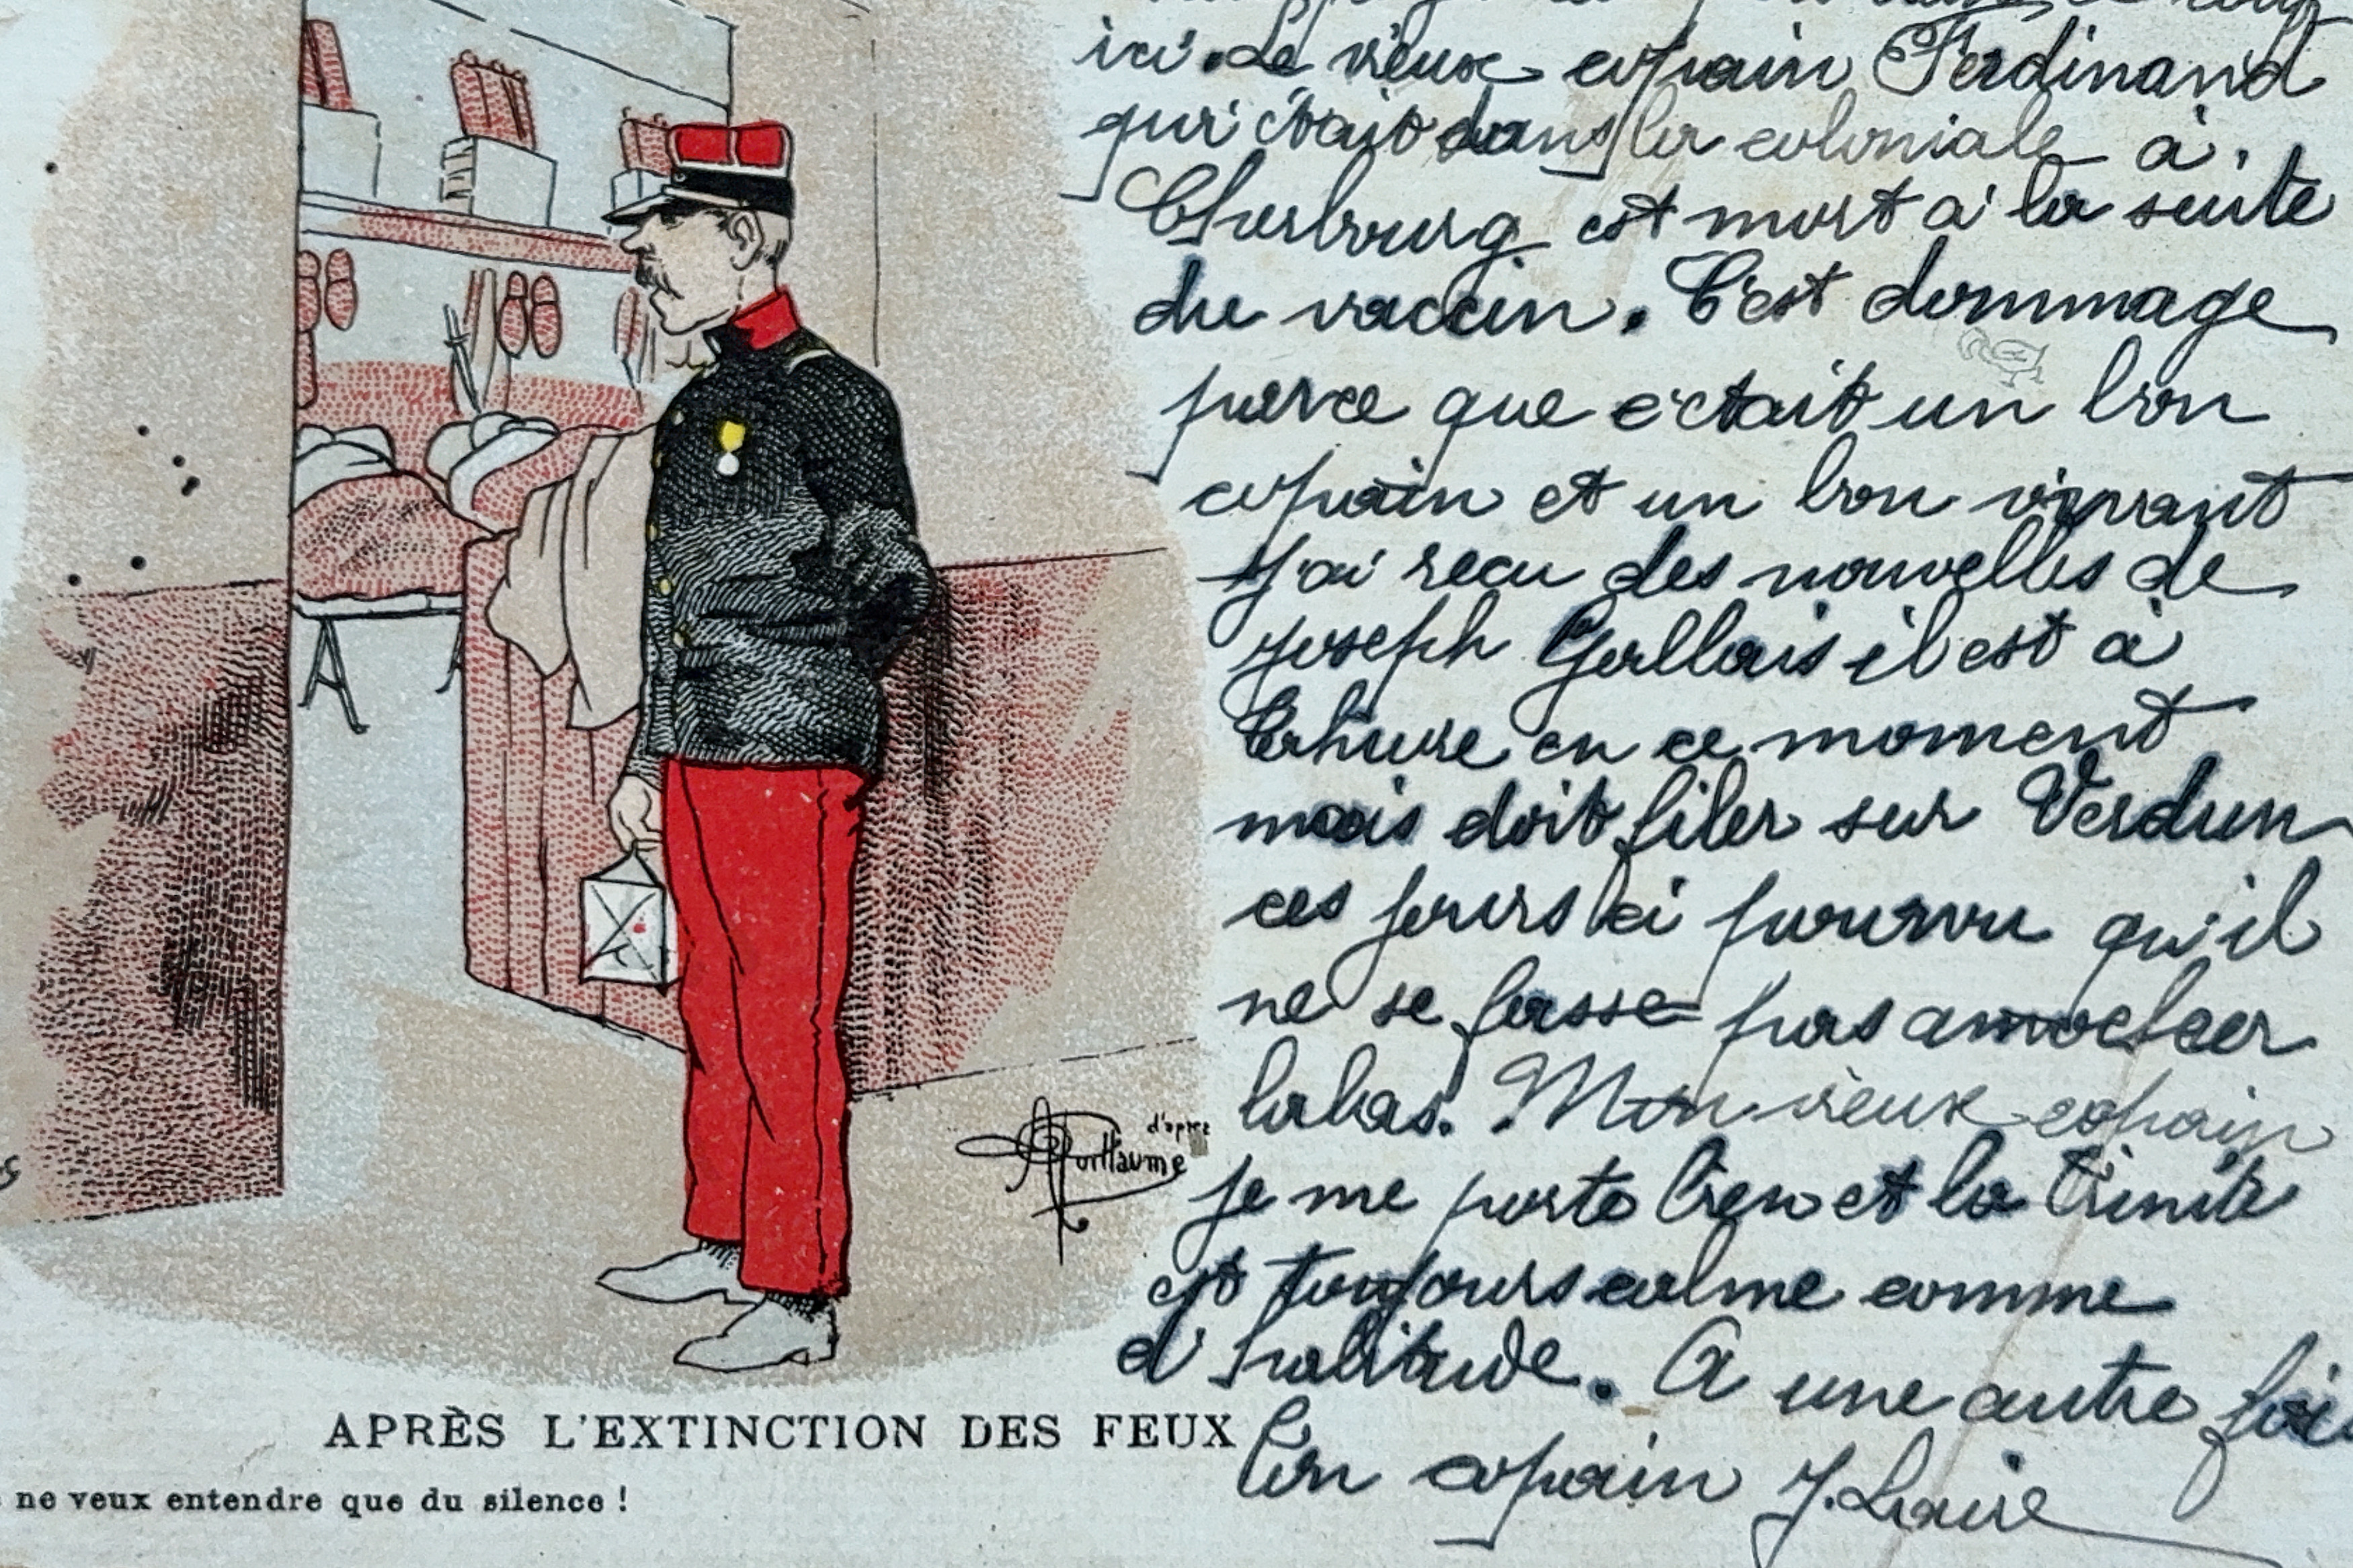 ici. Le vieux copain Ferdinand
qui était dans la coloniale à
Cherbourg est mort à la suite
du vaccin. C'est dommage
parce que c'était un bon
copain et un bon vivant
J'ai recu des nouvelles de
Joseph Gallais il est à
en ce moment
mais doit filer sur Verdun
ces jours ci pourvu qu'il
ne se fasse pas amocher
labas. Mon vieux copain
je me porte bien et la Trinité
est toujours calme comme
d'habitude. A une autre fois
Ton copain J.
d'après
AGuillaume
APRÈS L'EXTINCTION DES FEUX
ne veux entendre que du silence !